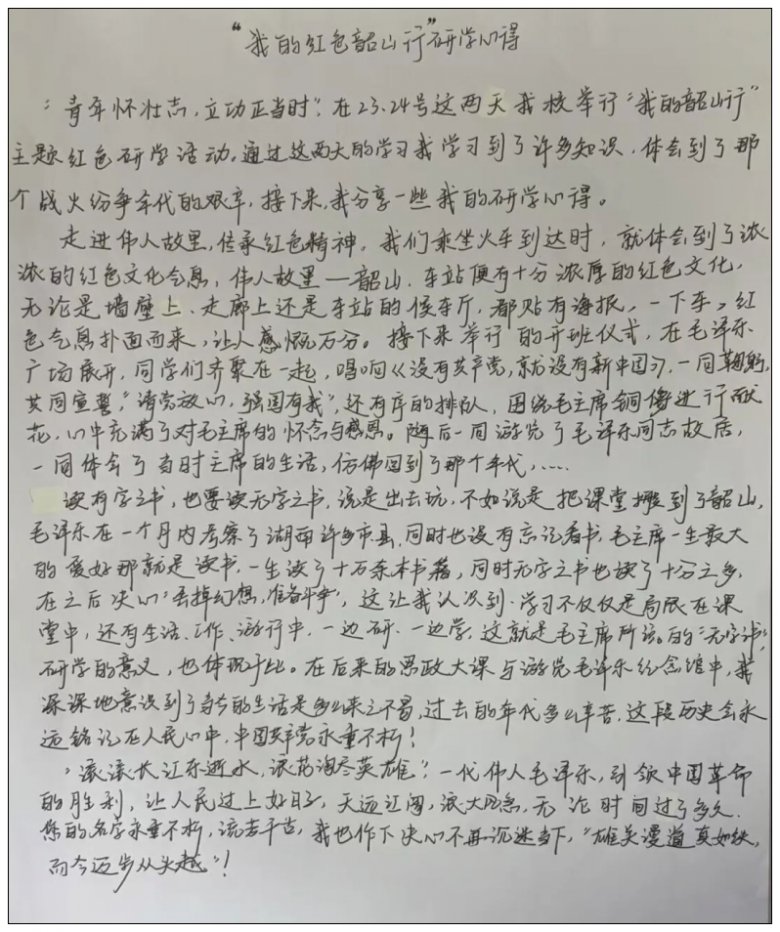 “我的红色韶山行”研学心得
“青年怀壮志,立功正当时”,在23.24号这两天我校举行“我的韶山行”
主题红色研学活动。通过这两天的学习我学习到了许多知识,体会到了那
个战火纷争年代的艰辛,接下来,我分享一些我的研学心得。
走进伟人故里,传承红色精神,我们乘坐火车到达时,就体会到了浓
浓的红色文化气息,伟人故里—韶山,车站便有十分浓厚的红色文化,
无论是墙壁上、走廊上还是车站的侯车厅,都贴有海报,一下车,红
色气息扑面而来,让人感慨万分。接下来举行的开班仪式,在毛泽东
广场展开,同学们齐聚在一起,唱响《没有共产党,就没有新中国》,一同鞠躬,
共同宣誓,“请党放心,强国有我”,还有序的排队,围绕毛主席铜像进行献
花,心中充满了对毛主席的怀念与感恩。随后一同游览了毛泽东同志故居,
一同体会了当时主席的生活,仿佛回到了那个年代,……
读有字之书,也要读无字之书,说是出去玩,不如说是把课堂搬到了韶山,
毛泽东在一个月内考察了湖南许多市县,同时也没有忘记看书,毛主席一生最大
的爱好那就是读书,一生读了十万余本书籍,同时无字之书也读了十分之多,
在之后决心“丢掉幻想,准备斗争”,这让我认识到,学习不仅仅是局限在课
堂中,还有生活、工作、游行中,一边研、一边学,这就是毛主席所说的“无字书”,
研学的意义,也体现于此。在后来的思政大课与游览毛泽东纪念馆中,我
深深地意识到了当今的生活是多么来之不易,过去的年代多么辛苦,这段历史会永
远铭记在人民心中,中国共产党永垂不朽!
“滚滚长江东逝水,浪花淘尽英雄”,一代伟人毛泽东,引领中国革命
的胜利,让人民过上好日子,天远江阔,浪大风急,无论时间过了多久,
您的名字永垂不朽,流芳千古,我也作下决心不再沉迷当下,“雄关漫道真如铁,
而今迈步从头越”!